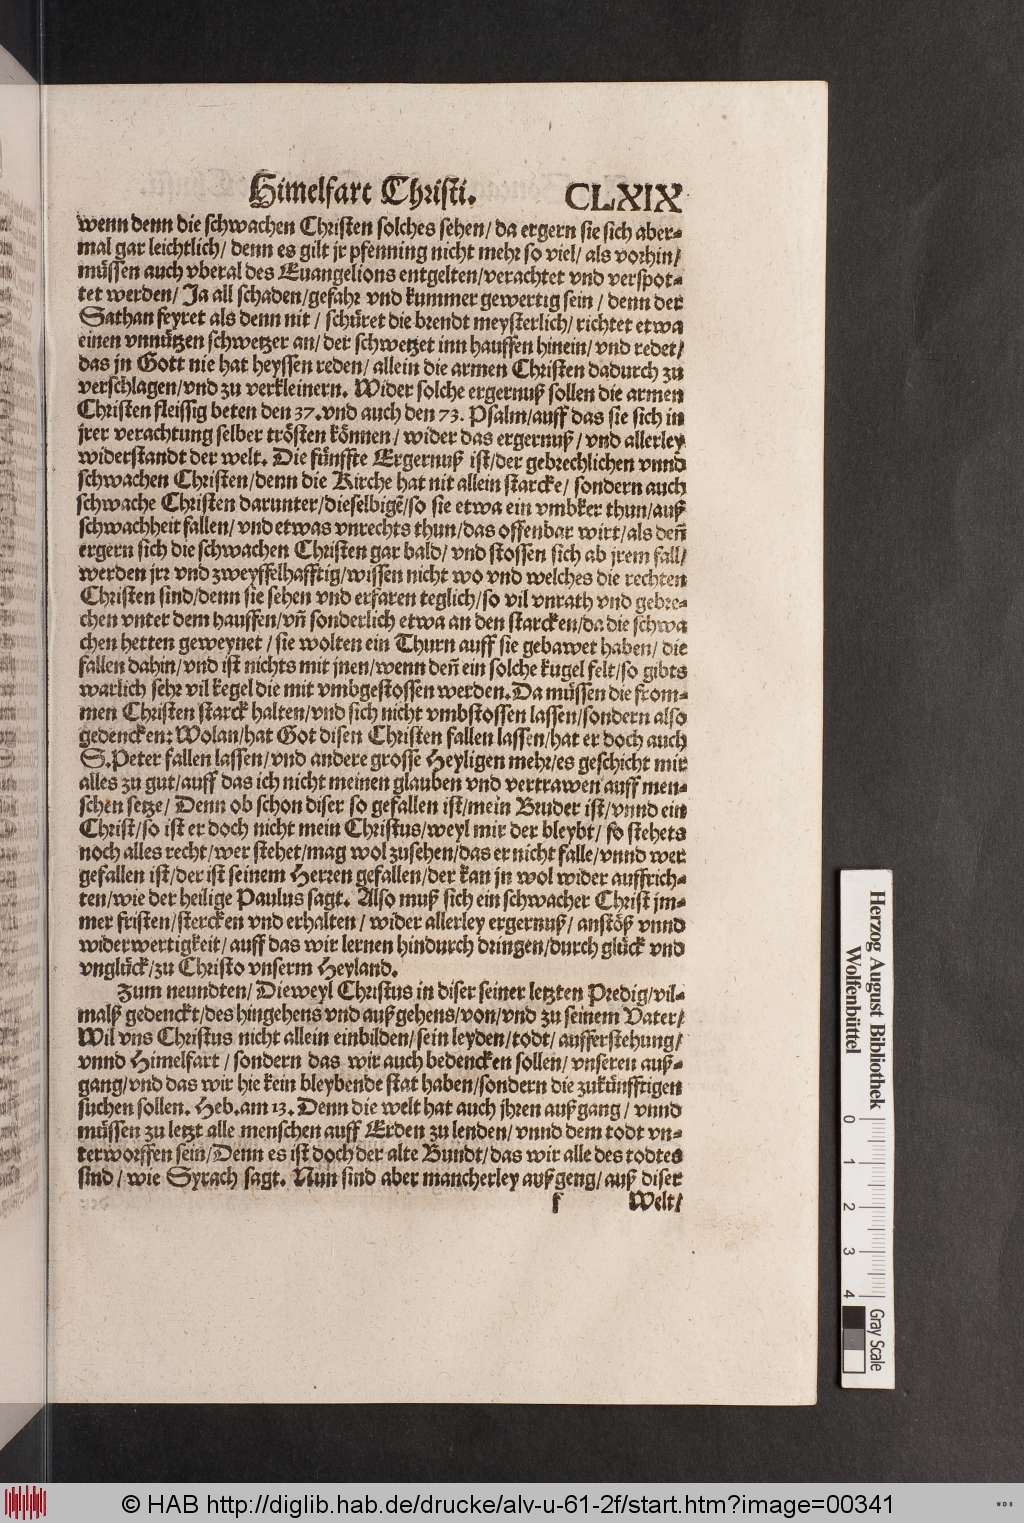 Himelfart Christi. CLXIX
wenn denn die schwachen Christen solches sehen/ da ergern sie sich aber-
mal gar leichtlich/ denn es gilt jr pfenning nicht mehr so viel/ als vorhin/
müssen auch vberal des Euangelions entgelten/verachtet vnd verspot-
tet werden/ Ja all schaden/gefahr vnd kummer gewertig sein/ denn der
Sathan feyret als denn nit/ schüret die brendt meysterlich/ richtet etwa
einen vnnützen schwetzer an/ der schwetzet inn hauffen hinein/ vnd redet/
das jn Gott nie hat heyssen reden/ allein die armen Christen dadurch zu
verschlagen/vnd zu verkleinern. Wider solche ergernuß sollen die armen
Christen fleissig beten den 37. vnd auch den 73. Psalm/auff das sie sich in
jrer verachtung selber trösten können/ wider das ergernuß/ vnd allerley
widerstandt der welt. Die fünffte Ergernuß ist/der gebrechlichen vnnd
schwachen Christen/denn die Kirche hat nit allein starcke/ sondern auch
schwache Christen darunter/dieselbigẽ/so sie etwa ein vmbker thun/auß
schwachheit fallen/ vnd etwas vnrechts thun/das offenbar wirt/als deñ
ergern sich die schwachen Christen gar bald/ vnd stossen sich ab jrem fall/
werden jrr vnd zweyffelhafftig/wissen nicht wo vnd welches die rechten
Christen sind/denn sie sehen vnd erfaren teglich/so vil vnrath vnd gebre-
chen vnter dem hauffen/vñ sonderlich etwa an den starcken/da die schwa
chen hetten geweynet/ sie wolten ein Thurn auff sie gebawet haben/ die
fallen dahin/vnd ist nichts mit jnen/wenn deñ ein solche kugel felt/so gibts
warlich sehr vil kegel die mit vmbgestossen werden. Da müssen die from-
men Christen starck halten/vnd sich nicht vmbstossen lassen/sondern also
gedencken: Wolan/hat Got disen Christen fallen lassen/hat er doch auch
S. Peter fallen lassen/vnd andere grosse Heyligen mehr/es geschicht mir
alles zu gut/auff das ich nicht meinen glauben vnd vertrawen auff men-
schen setze/ Denn ob schon diser so gefallen ist/mein Bruder ist/vnnd ein
Christ/so ist er doch nicht mein Christus/weyl mir der bleybt/ so stehets
noch alles recht/wer stehet/mag wol zusehen/das er nicht falle/vnnd wer
gefallen ist/der ist seinem Herren gefallen/der kan jn wol wider auffrich-
ten/wie der heilige Paulus sagt. Also muß sich ein schwacher Christ jm-
mer fristen/stercken vnd erhalten/ wider allerley ergernuß/ anstöß vnnd
widerwertigkeit/ auff das wir lernen hindurch dringen/durch glück vnd
vnglück/zu Christo vnserm Heyland.
Zum neundten/ Dieweyl Christus in diser seiner letzten Predig/vil-
malß gedenckt/des hingehens vnd außgehens/von/vnd zu seinem Vater/
Wil vns Christus nicht allein einbilden/sein leyden/todt/ aufferstehung/
vnnd Himelfart/ sondern das wir auch bedencken sollen/ vnseren auß-
gang/vnd das wir hie kein bleybende stat haben/sondern die zukünfftigen
suchen sollen. Heb. am 13. Denn die welt hat auch jhren außgang/ vnnd
müssen zu letzt alle menschen auff Erden zu lenden/ vnnd dem todt vn-
terworffen sein/Denn es ist doch der alte Bundt/das wir alle des todtes
sind/ wie Syrach sagt. Nun sind aber mancherley außgeng/ auß diser
f Welt/
Herzog August Bibliothek
Wolfenbüttel
0 1 2 3 4
Gray Scale
© HAB http://diglib.hab.de/drucke/alv-u-61-2f/start.htm?image=00341